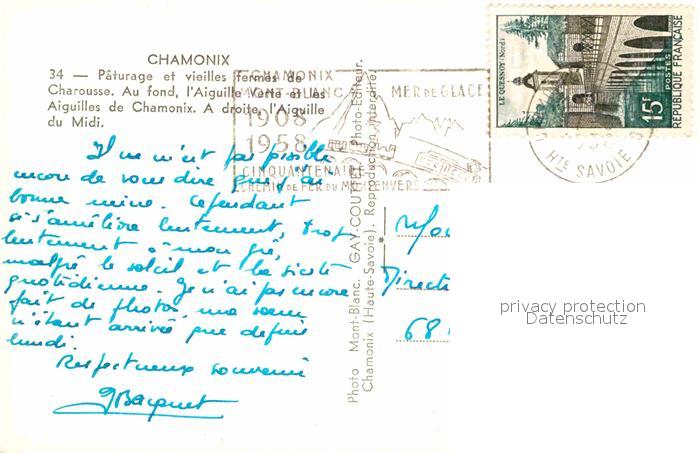 CHAMONIX
34 — Pâturage et vieilles fermes de
Charousse. Au fond, l'Aiguille Verte et les
Aiguilles de Chamonix. A droite, l'Aiguille
du Midi.
CHAMONIX
MONT-BLANC MER DE GLACE
1908
1958
CINQUANTENAIRE
CHEMIN DE FER DU MONTENVERS
LE QUESNOY (Nord)
15F
POSTES
REPUBLIQUE FRANÇAISE
HTE SAVOIE
Il ne m'est pas possible
encore de vous dire que j'ai
bonne mine. Cependant
s'améliore lentement, trop
lentement à mon gré,
malgré le soleil et la sieste
quotidienne. Je n'ai pas encore
fait de photos, ma sœur
n'étant arrivée que depuis
lundi.
Respectueux souvenir
Photo Mont-Blanc. GAY-COUTTET, Photo-Editeur.
Chamonix (Haute-Savoie). Reproduction interdite.
Directe
68
privacy protection
Datenschutz